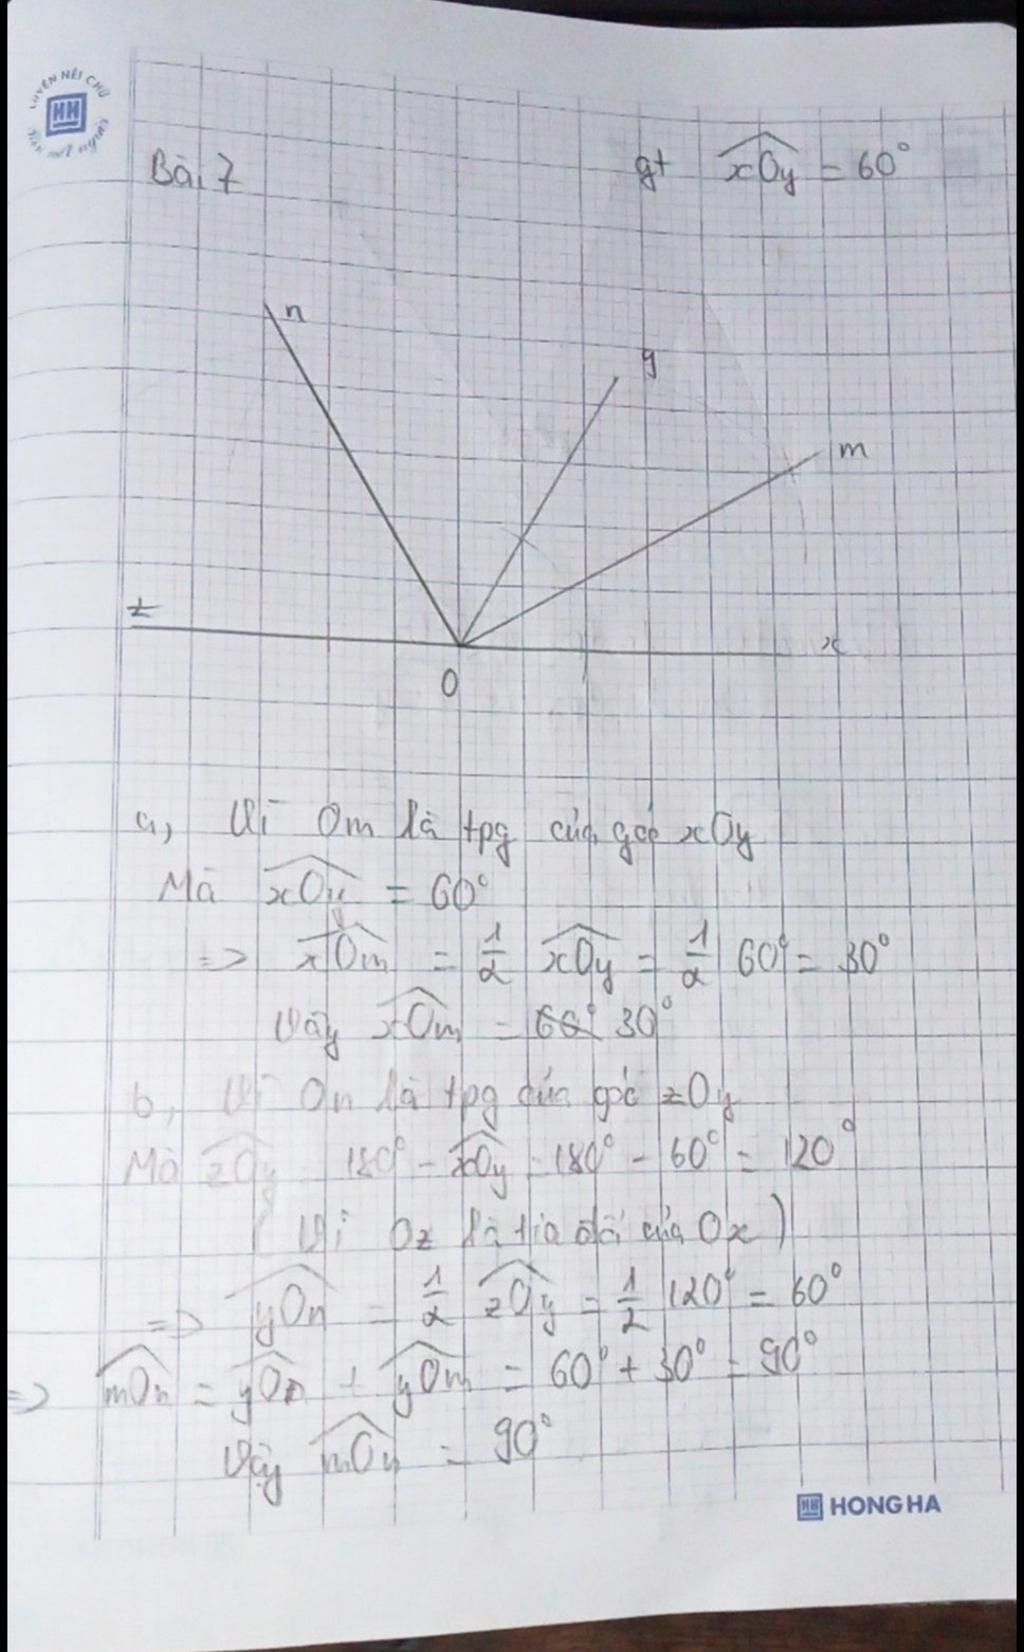 LUYỆN NÉT CHỮ
HH
Bài 7
gt xOy = 60°
n
y
m
z
x
O
a, Vì Om là tpg của góc xOy
Mà xOy = 60°
=> xOm = 1/2 xOy = 1/2 60° = 30°
Vậy xOm = 30°
b, Vì On là tpg của góc zOy
Mà zOy 180° - xOy = 180° - 60° = 120°
( Vì Oz là tia đối của Ox )
=> yOn = 1/2 zOy = 1/2 120° = 60°
=> mOn = yOn + yOm = 60° + 30° = 90°
Vậy mOn = 90°
HH HONG HA